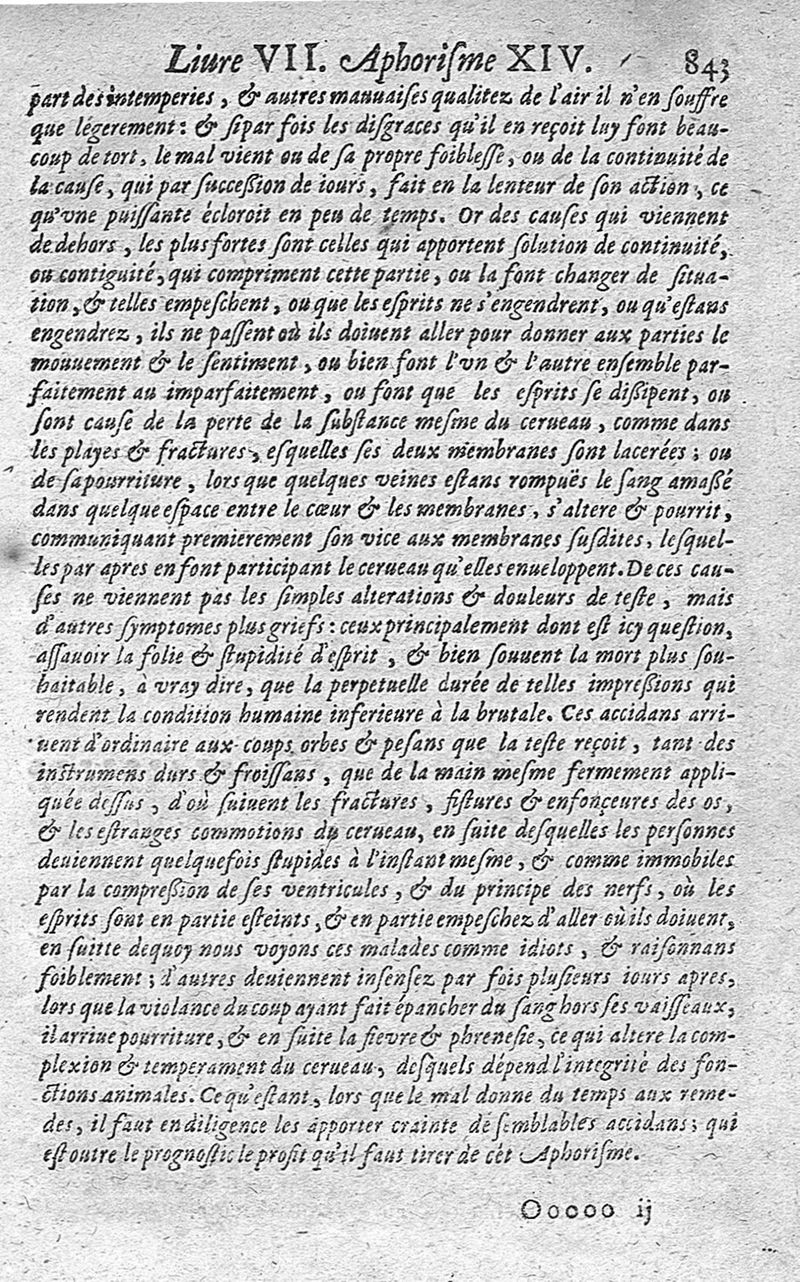 Liure VII. Aphoriſme XIV. 843
part des intemperies, & autres mauuaiſes qualitez de l'air il n'en ſouffre
que légerement: & ſi par fois les diſgraces qu'il en reçoit luy font beau-
coup de tort, le mal vient ou de ſa propre foibleſſe, ou de la continuité de
la cauſe, qui par ſucceßion de iours, fait en la lenteur de ſon action, ce
qu'vne puiſſante écloroit en peu de temps. Or des cauſes qui viennent
de dehors, les plus fortes ſont celles qui apportent ſolution de continuité,
ou contiguité, qui compriment cette partie, ou la font changer de ſitua-
tion, & telles empeſchent, ou que les eſprits ne s'engendrent, ou qu'eſtans
engendrez, ils ne paſſent où ils doiuent aller pour donner aux parties le
mouuement & le ſentiment, ou bien font l'vn & l'autre enſemble par-
faitement au imparfaitement, ou font que les eſprits ſe dißipent, ou
ſont cauſe de la perte de la ſubſtance meſme du cerueau, comme dans
les playes & fractures, eſquelles ſes deux membranes ſont lacerées; ou
de ſa pourriture, lors que quelques veines eſtans rompuës le ſang amaßé
dans quelque eſpace entre le cœur & les membranes, s'altere & pourrit,
communiquant premierement ſon vice aux membranes ſuſdites, leſquel-
les par apres en font participant le cerueau qu'elles enueloppent. De ces cau-
ſes ne viennent pas les ſimples alterations & douleurs de teſte, mais
d'autres ſymptomes plus griefs: ceux principalement dont eſt icy queſtion,
aſſauoir la folie & ſtupidité d'eſprit, & bien ſouuent la mort plus ſou-
haitable, à vray dire, que la perpetuelle durée de telles impreßions qui
rendent la condition humaine inferieure à la brutale. Ces accidans arri-
uent d'ordinaire aux coups orbes & peſans que la teſte reçoit, tant des
inſtrumens durs & froiſſans, que de la main meſme fermement appli-
quée deſſus, d'où ſuiuent les fractures, fiſtures & enfonçeures des os,
& les eſtranges commotions du cerueau, en ſuite deſquelles les perſonnes
deuiennent quelquefois ſtupides à l'inſtant meſme, & comme immobiles
par la compreßion de ſes ventricules, & du principe des nerfs, où les
eſprits ſont en partie eſteints, & en partie empeſchez d'aller où ils doiuent,
en ſuitte dequoy nous voyons ces malades comme idiots, & raiſonnans
foiblement; d'autres deuiennent inſenſez par fois pluſieurs iours apres,
lors que la violance du coup ayant fait épancher du ſang hors ſes vaiſſeaux,
il arriue pourriture, & en ſuite la fievre & phreneſie, ce qui altere la com-
plexion & temperament du cerueau, deſquels dépend l'integrité des fon-
ctions animales. Ce qu'eſtant, lors que le mal donne du temps aux reme-
des, il faut en diligence les apporter crainte de ſemblables accidans; qui
eſt outre le prognoſtic le profit qu'il faut tirer de cét Aphoriſme.
Ooooo ij